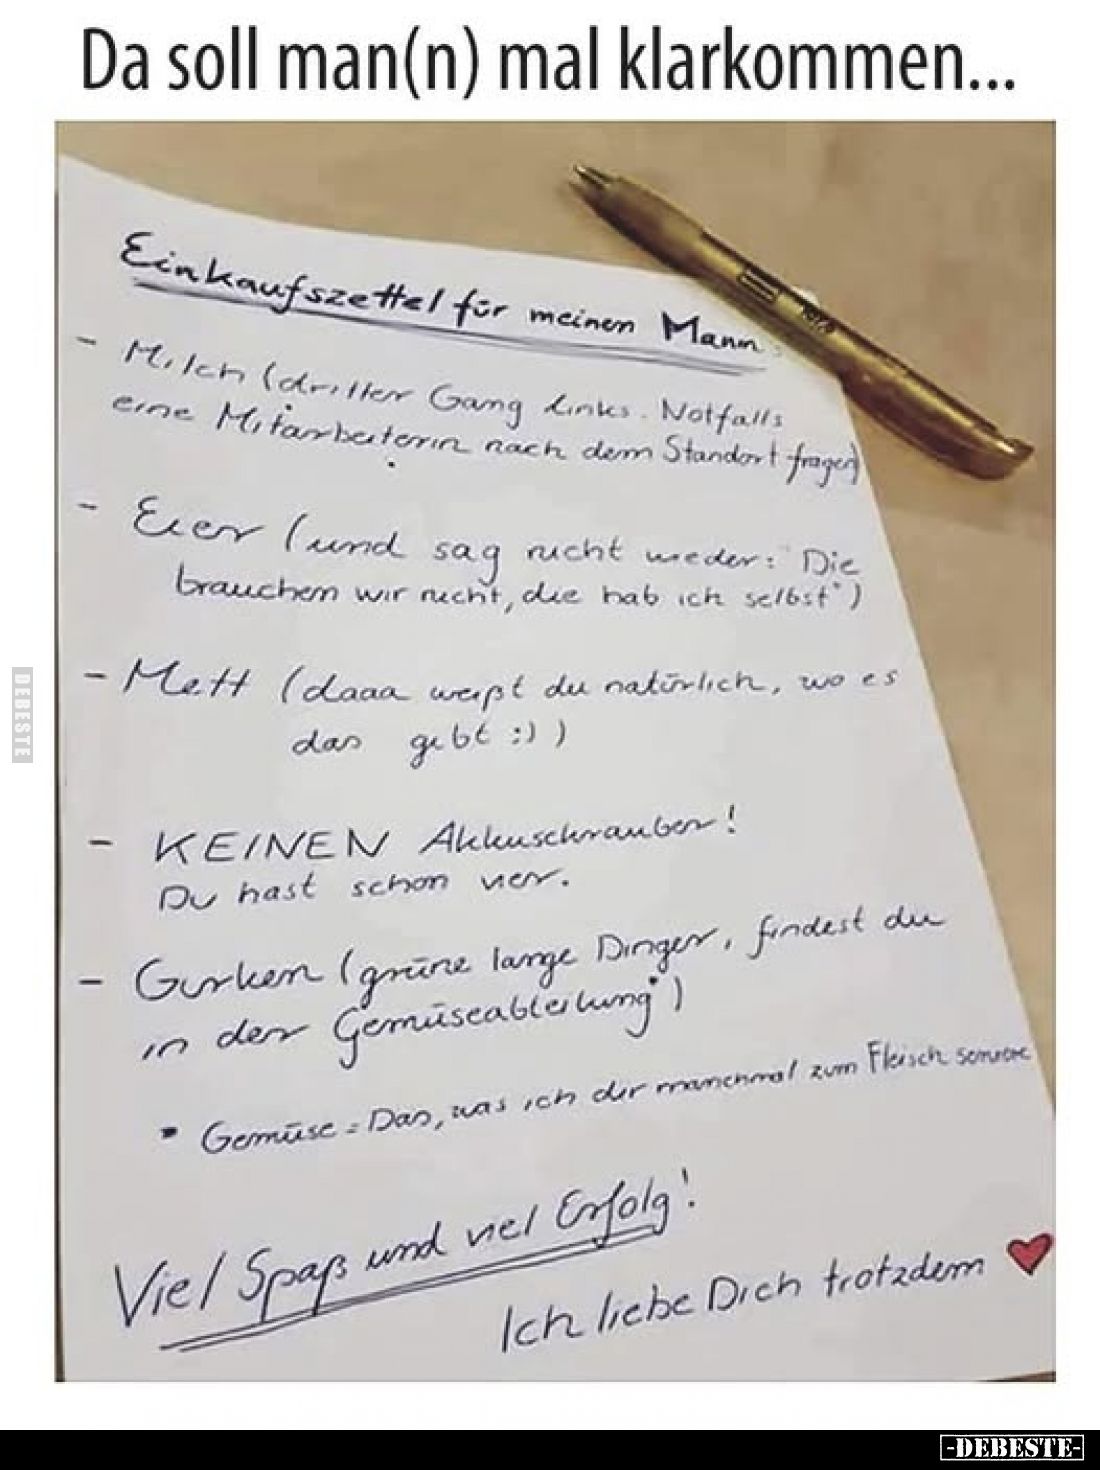 Da soll man(n) mal klarkommen...
Einkaufszettel für meinen Mann
- Milch (dritter Gang links. Notfalls
eine Mitarbeiterin nach dem Standort fragen)
- Eier (und sag nicht wieder: "Die
brauchen wir nicht, die hab ich selbst")
- Mett (daaa weißt du natürlich, wo es
das gibt :) )
- KEINEN Akkuschrauber!
Du hast schon vier.
- Gurken (grüne lange Dinger, findest du
in der Gemüseabteilung*)
* Gemüse = Das, was ich dir manchmal zum Fleisch serviere
Viel Spaß und viel Erfolg!
Ich liebe Dich trotzdem
DEBESTE
-DEBESTE-